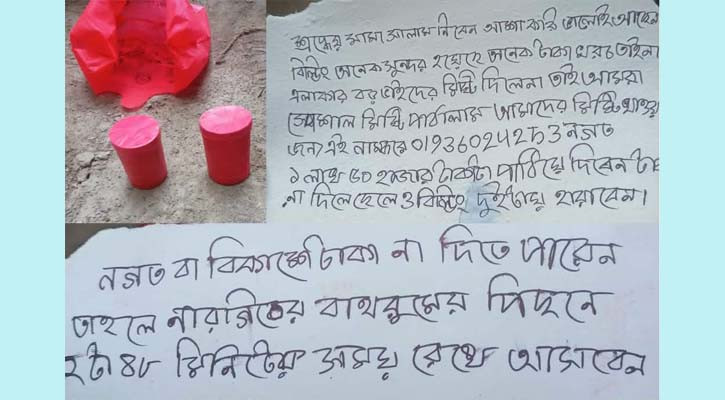 শ্রদ্ধেয় মামা সালাম নিবেন আশা করি ভালোই আছেন
বিল্ডিং অনেক সুন্দর হয়েছে অনেক টাকা খরচ তাইনা
এলাকার বড় ভাইদের মিষ্টি দিলেননা তাই আমরা
স্পেশাল মিষ্টি পাঠালাম আমাদের মিষ্টি খাওয়ার
জন্য এই নাম্বারে নগত
১ লাখ ৫০ হাজার টাকাটা পাঠিয়ে দিবেন টাকা
না দিলে ছেলে ও বিল্ডিং দুইটায় হারাবেন।
নগত বা বিকাশে টাকা না দিতে পারেন
তাহলে নারগিসের বাথরুমের পিছনে
২টা ৪৮ মিনিটের সময় রেখে আসবেন